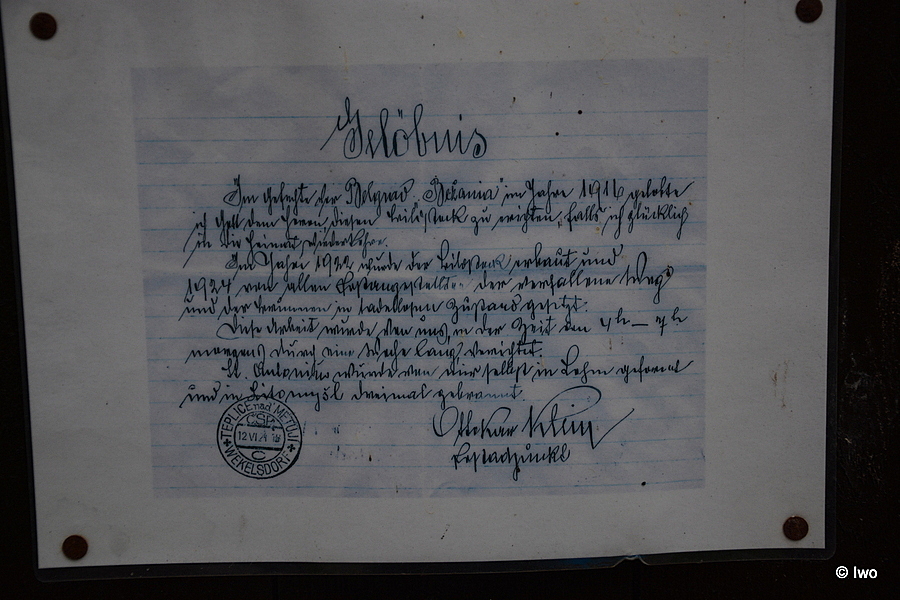 Gelöbnis
Im Gefechte der Belgrad Bežania im Jahre 1916 gelobte
ich Gott dem Herrn, diesen Bildstock zu errichten, falls ich glücklich
in die Heimat wiederkehre.
Im Jahre 1922 wurde der Bildstock erbaut und
1924 von allen Festangestellten der verfallene Weg
und der Brunnen in tadellosen Zustand gesetzt.
Diese Arbeit wurde von uns in der Zeit von 4h – 7h
morgens durch eine Woche lang verrichtet.
St. Antonius wurde von mir selbst in Lehm geformt
und in Litomyšl dreimal gebrannt.
Ottokar
TEPLICE nad METUJÍ
ČSR
12 VI 24 18
C
WEKELSDORF
© Iwo